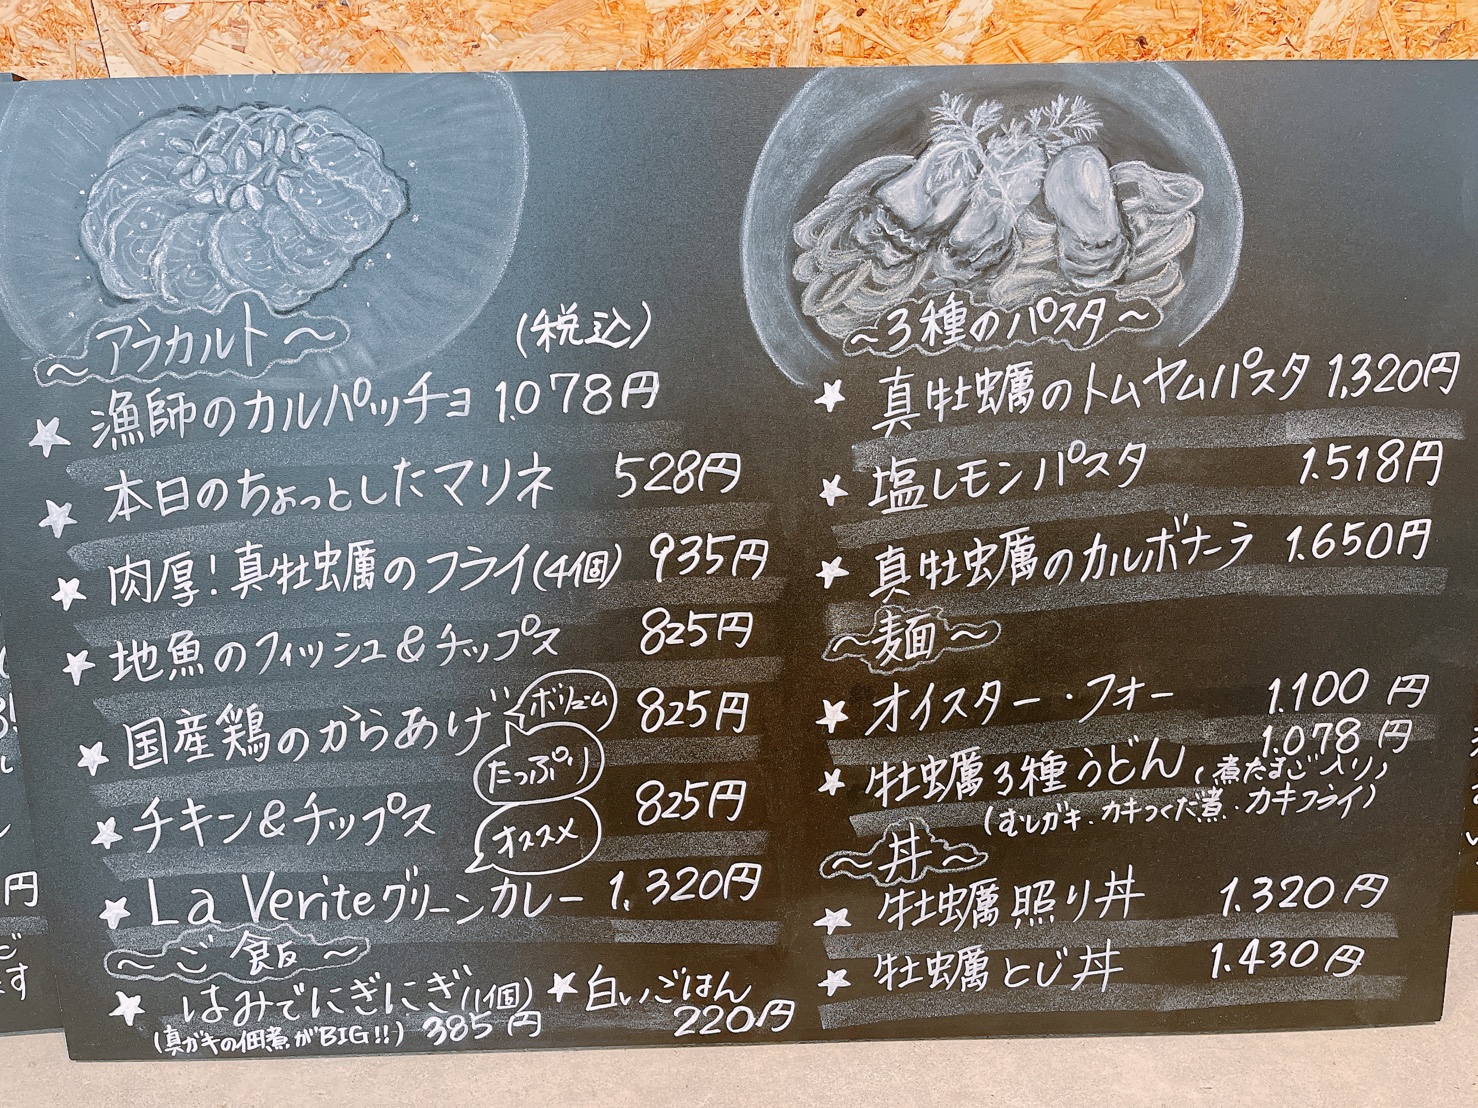 ～アラカルト～
(税込)
漁師のカルパッチョ 1.078円
本日のちょっとしたマリネ 528円
肉厚!真牡蠣のフライ(4個) 935円
地魚のフィッシュ&チップス 825円
国産鶏のからあげ 825円
ボリューム
たっぷり
チキン&チップス 825円
オススメ
La Veriteグリーンカレー 1.320円
～ご飯～
はみでにぎにぎ(1個)
(真ガキの佃煮がBIG!!) 385円
白いごはん
220円
～3種のパスタ～
真牡蠣のトムヤムパスタ 1,320円
塩レモンパスタ 1.518円
真牡蠣のカルボナーラ 1.650円
～麺～
オイスター・フォー 1.100円
1.078円
牡蠣3種うどん(煮たまご入り)
(むしガキ.カキつくだ煮.カキフライ)
～丼～
牡蠣照り丼 1.320円
牡蠣とじ丼 1.430円
円